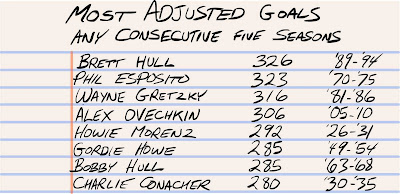 MOST ADJUSTED GOALS
ANY CONSECUTIVE FIVE SEASONS
BRETT HULL 326 '89-94
PHIL ESPOSITO 323 '70-75
WAYNE GRETZKY 316 '81-86
ALEX OVECHKIN 306 '05-10
HOWIE MORENZ 292 '26-31
GORDIE HOWE 285 '49-54
BOBBY HULL 285 '63-68
CHARLIE CONACHER 280 '30-35